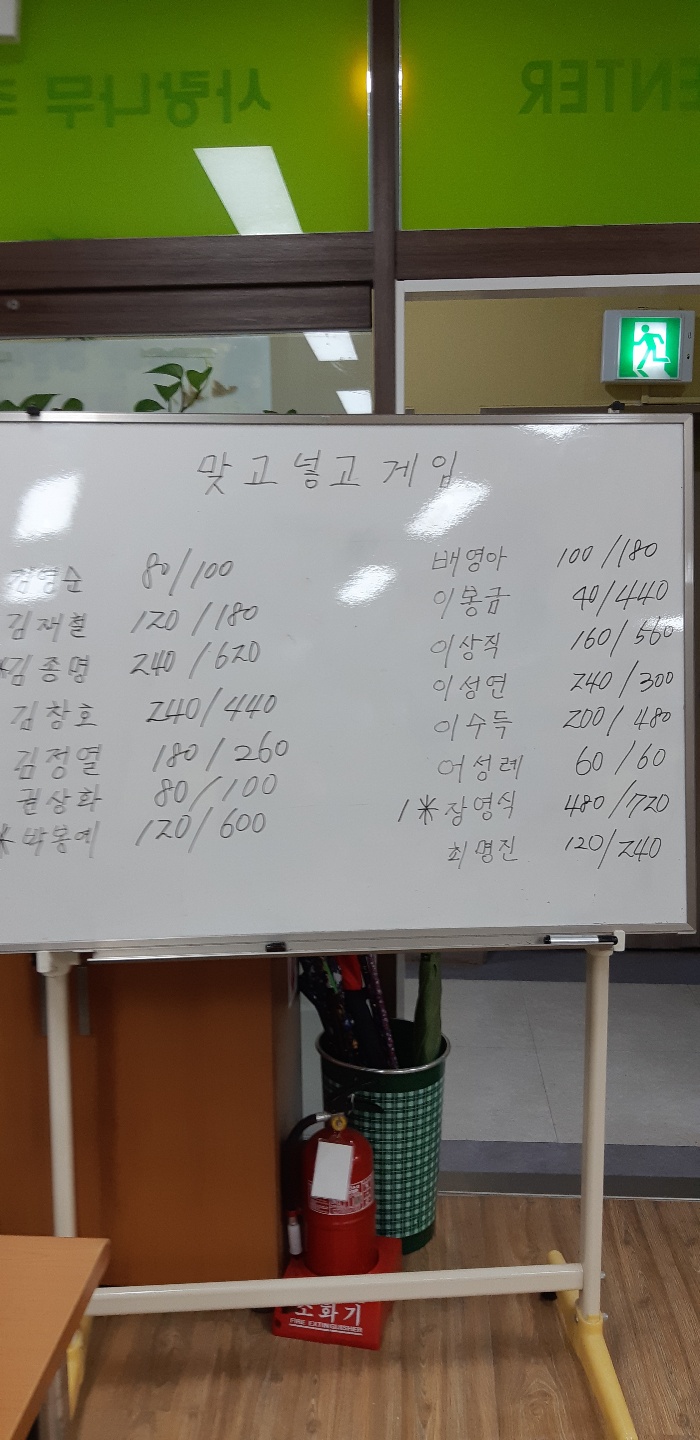 사랑나무
ENTER
맞고넣고게임
김영순 80/100
김재철 120/180
*김종명 240/620
김창호 240/440
김정열 180/260
권상화 80/100
*박봉예 120/600
배영아 100/180
이봉금 40/440
이상직 160/560
이성연 240/300
이수득 200/480
어성례 60/60
1*장영식 480/720
최명진 120/240
소화기
FIRE EXTINGUISHER